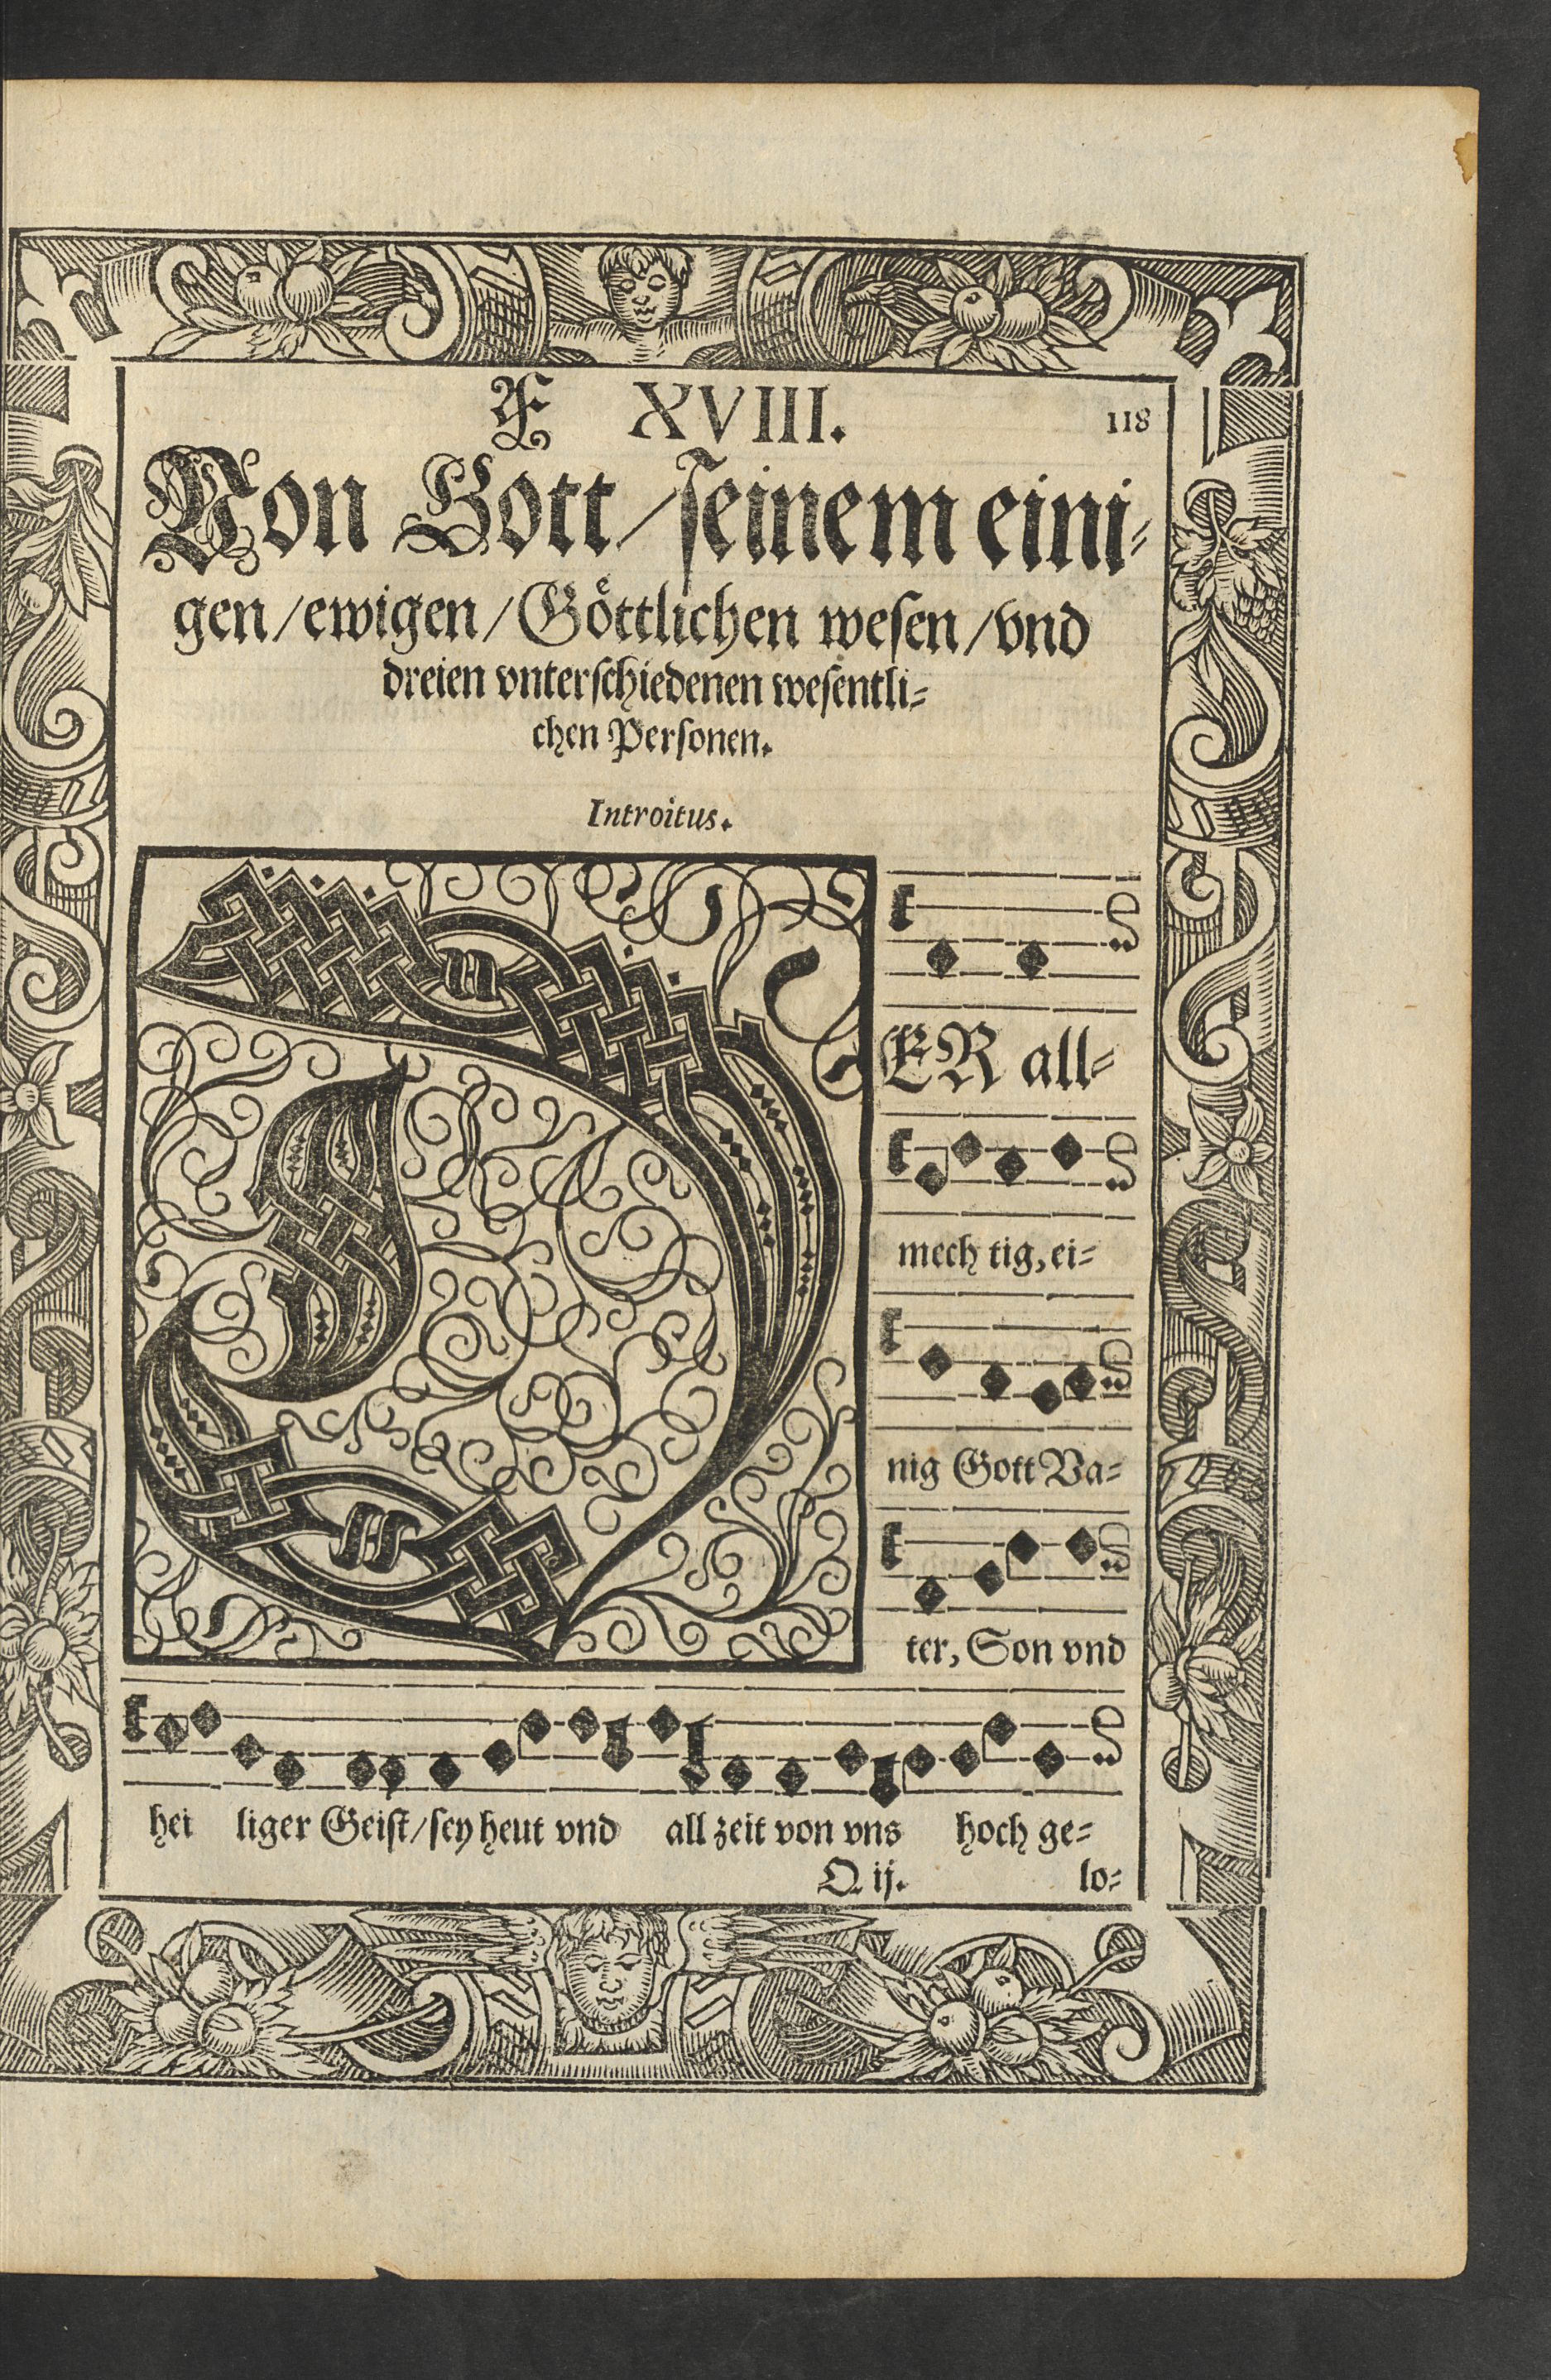 XVIII. 118
Von Gott/seinem eini⸗
gen/ewigen/Göttlichen wesen/vnd
dreien vnterschiedenen wesentli⸗
chen Personen.
Introitus.
DER all⸗
mech tig, ei⸗
nig Gott Va⸗
ter, Son vnd
hei liger Geist/sey heut vnd all zeit von vns hoch ge⸗
Q ij. lo⸗